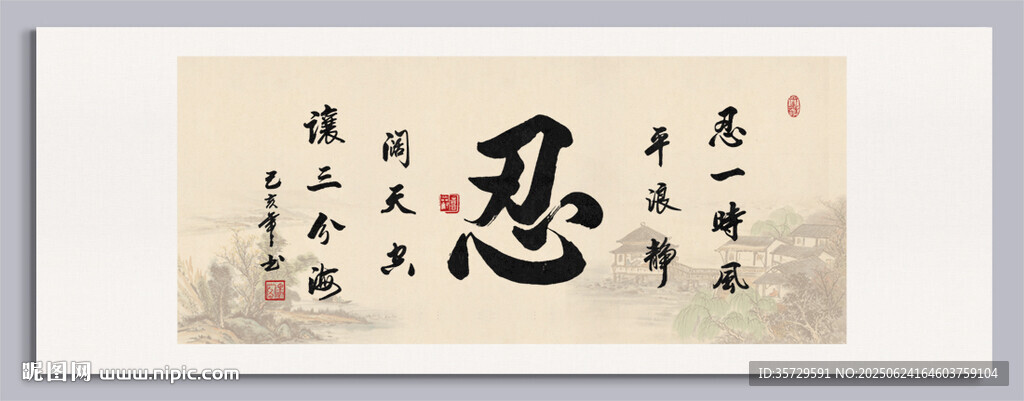 忍一時風
平浪静
忍
讓三分海
闊天空
己亥年书
昵图网 www.nipic.com
ID:35729591 NO:20250624164603759104